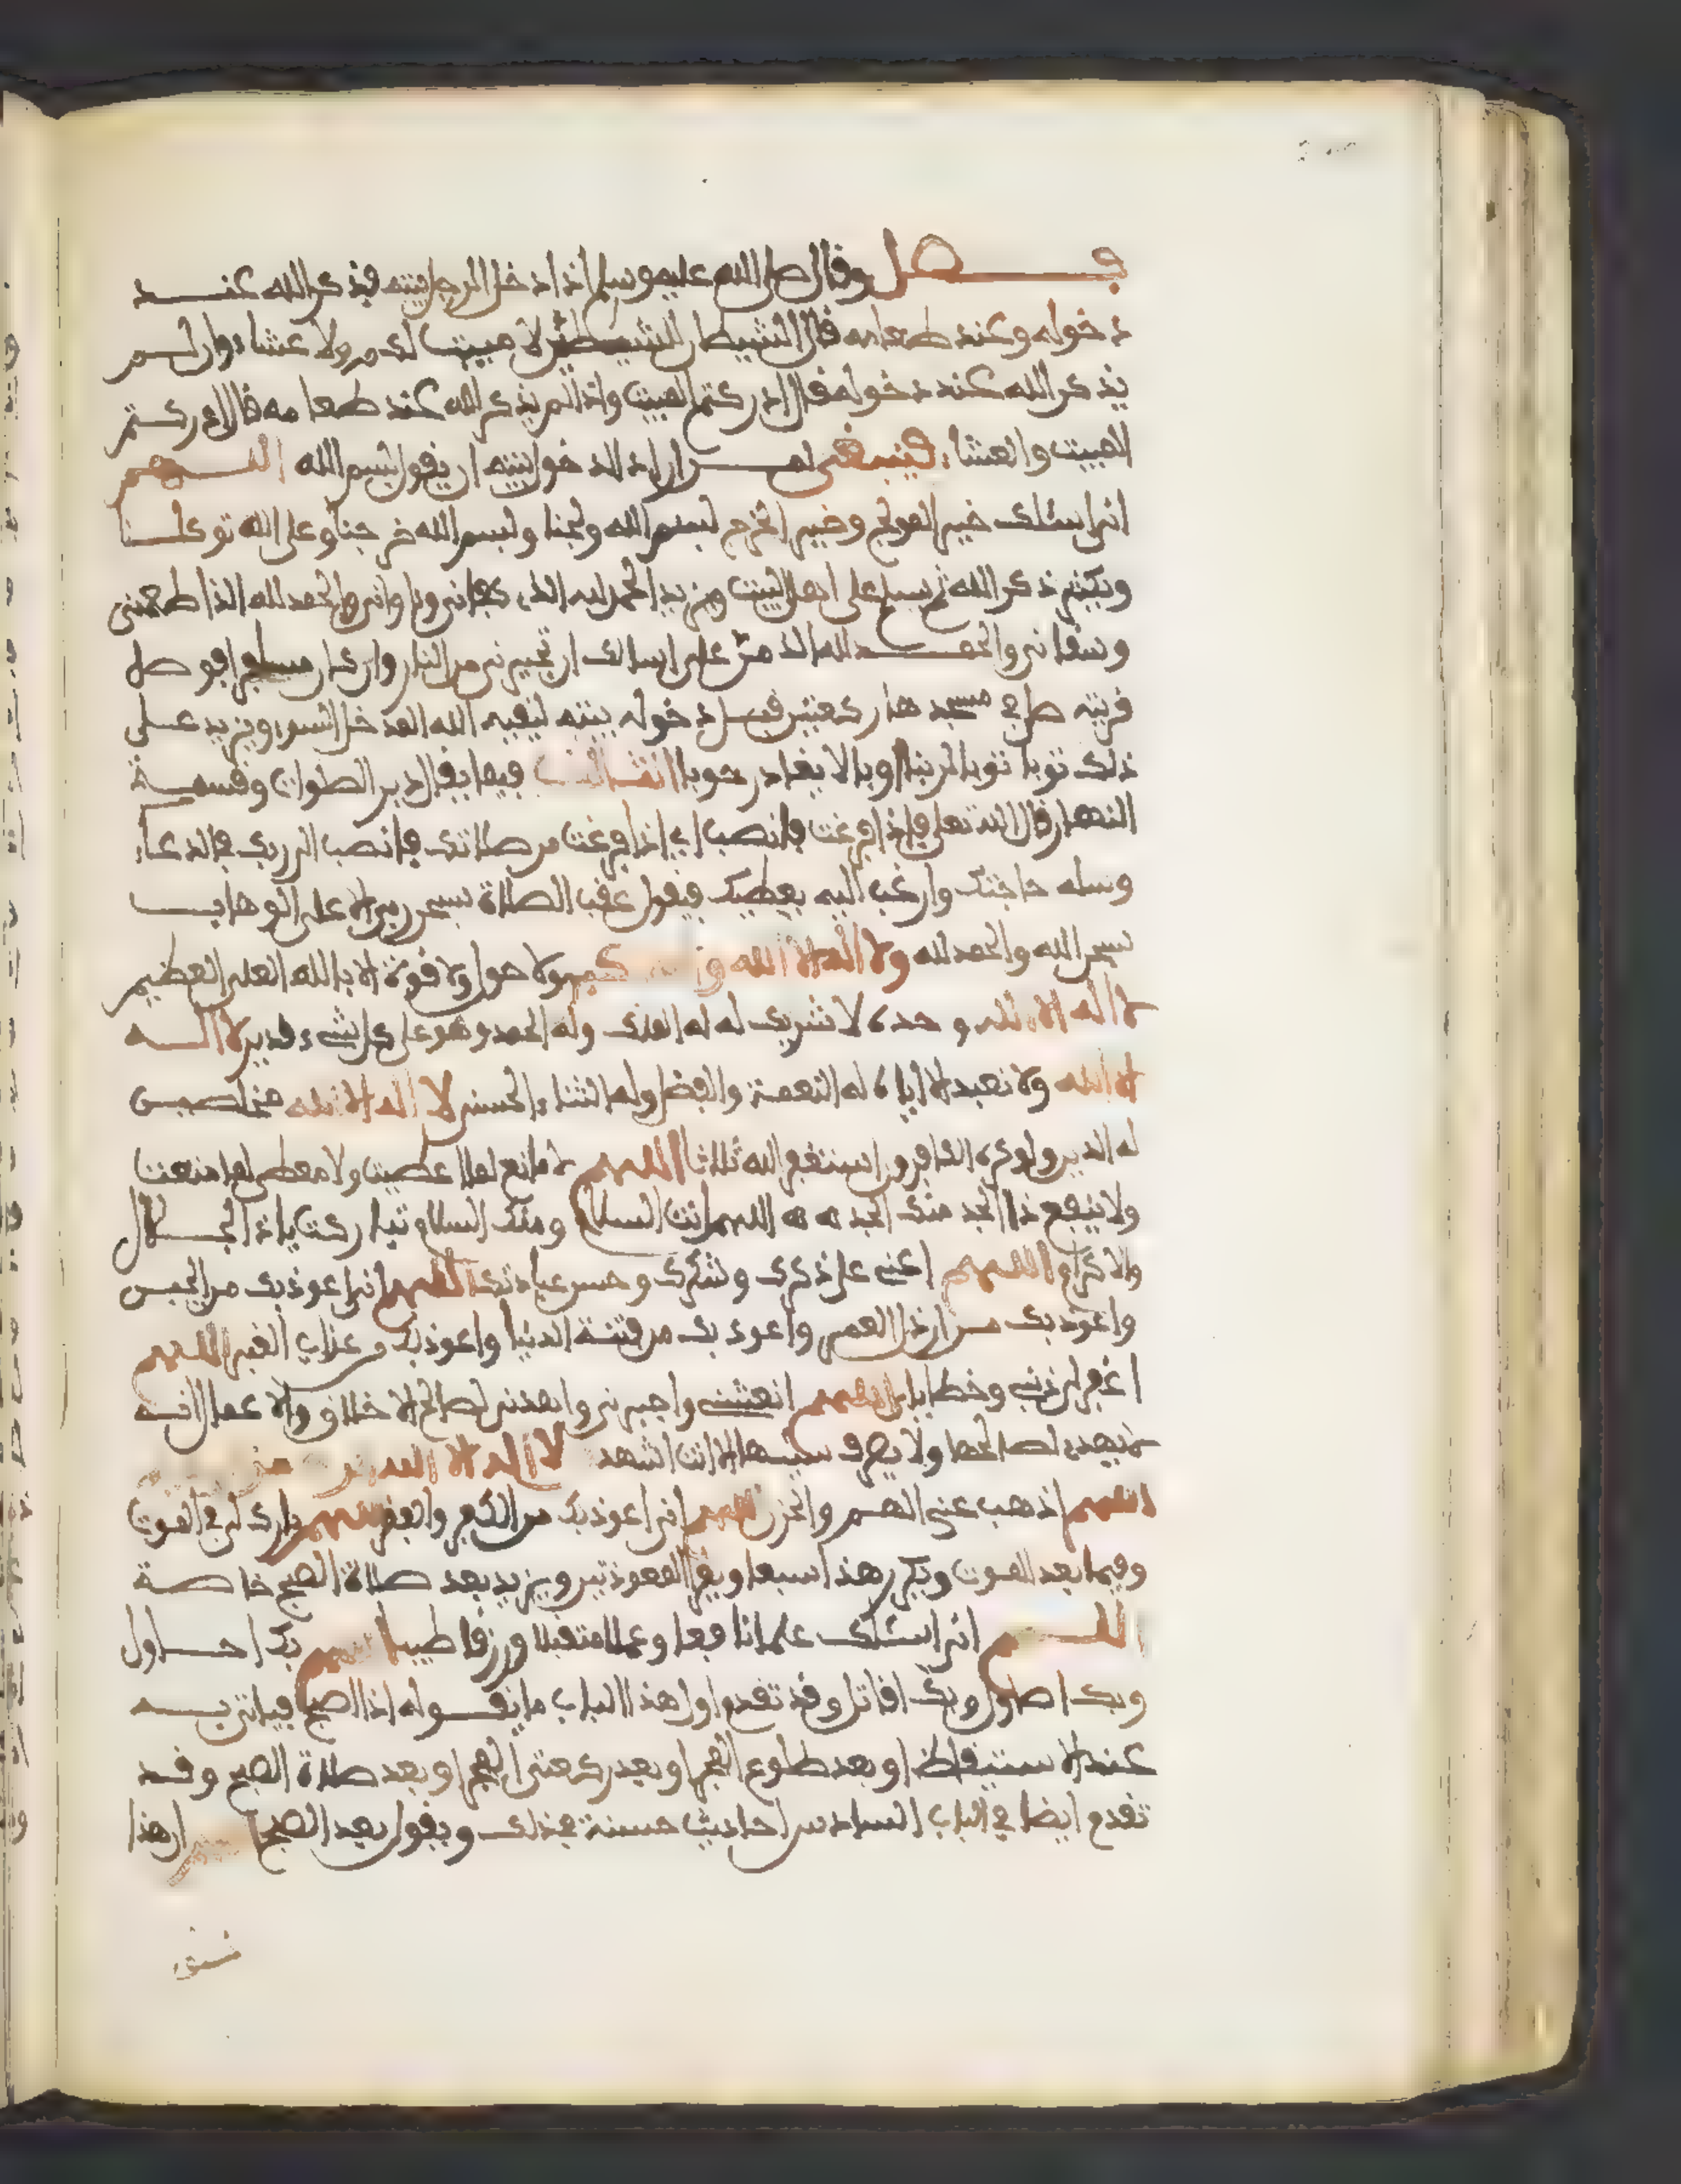 فصل وقال صلى الله عليه وسلم اذا دخل الرجل بيته فيذكر الله عند
دخوله وعند طعامه قال الشيطان للشيطين لا مبيت لكم ولا عشاء وان لم
يذكر الله عند دخوله قال ادركتم المبيت واذا لم يذكر الله عند طعامه قال ادركتم
المبيت والعشاء فينبغي لمن اراد الدخول بيته ان يقول بسم الله اللهم
اني اسئلك خير المولج وخير المخرج بسم الله ولجنا وبسم الله خرجنا وعلى الله توكلنا
ويكثر ذكر الله ثم يسلم على اهل البيت ويزيد الحمد لله الذي كفاني وءاواني والحمد لله الذي اطعمني
وسقاني والحمد لله الذي من علي اسالك ان تجيرني من النار وان كان مسافرا فوصل
قريته صلى في مسجدها ركعتين قبل دخوله بيته ليقيه الله المدخل السوء ويزيد على
ذلك توبا توبا لربنا اوبا لا يغادر حوبا فيما يقال دبر الصلوات وقسمة
النهار قال الله تعلى فاذا فرغت فانصب اي اذا فرغت من صلاتك فانصب الى ربك في الدعاء
وسله حاجتك وارغب اليه يعطيك فيقول عقب الصلاة سبحن ربي الاعلى الوهاب
سبحن الله والحمد لله ولا اله الا الله والله اكبر ولا حول ولا قوة الا بالله العلي العظيم
لا اله الا الله وحده لا شريك له له الملك وله الحمد وهو على كل شيء قدير لا اله
الا الله ولا نعبد الا اياه له النعمة والفضل وله الثناء الحسن لا اله الا الله مخلصين
له الدين ولو كره الكافرون استغفر الله ثلاثا اللهم لا مانع لما اعطيت ولا معطي لما منعت
ولا ينفع ذا الجد منك الجد اللهم انت السلام ومنك السلام تباركت يا ذا الجلال
والاكرام اللهم اعني على ذكرك وشكرك وحسن عبادتك اللهم اني اعوذ بك من الجبن
واعوذ بك من ارذل العمر واعوذ بك من فتنة الدنيا واعوذ بك من عذاب القبر اللهم
اغفر لي ذنبي وخطاياي اللهم انعشني واجبرني واهدني لصالح الاخلاق والاعمال انه
لا يهدي لصالحها ولا يصرف سيئها الا انت اشهد لا اله الا الله
اللهم اذهب عني الهم والحزن اللهم اني اعوذ بك من الكفر والفقر اللهم بارك لي في الموت
وفيما بعد الموت ويكرر هذا سبعا ويقرأ المعوذتين ويزيد بعد صلاة الصبح خاصة
اللهم اني اسئلك علما نافعا وعملا متقبلا ورزقا طيبا اللهم بك احاول
وبك اصاول وبك اقاتل وقد تقدم اول هذا الباب ما يقوله اذا اصبح فياتي به
عند الاستيقاظ او بعد طلوع الفجر او بعد ركعتي الفجر او بعد صلاة الصبح وقد
تقدم ايضا في الباب السادس احاديث حسنة في ذلك ويقول بعد الصبح ان هذا